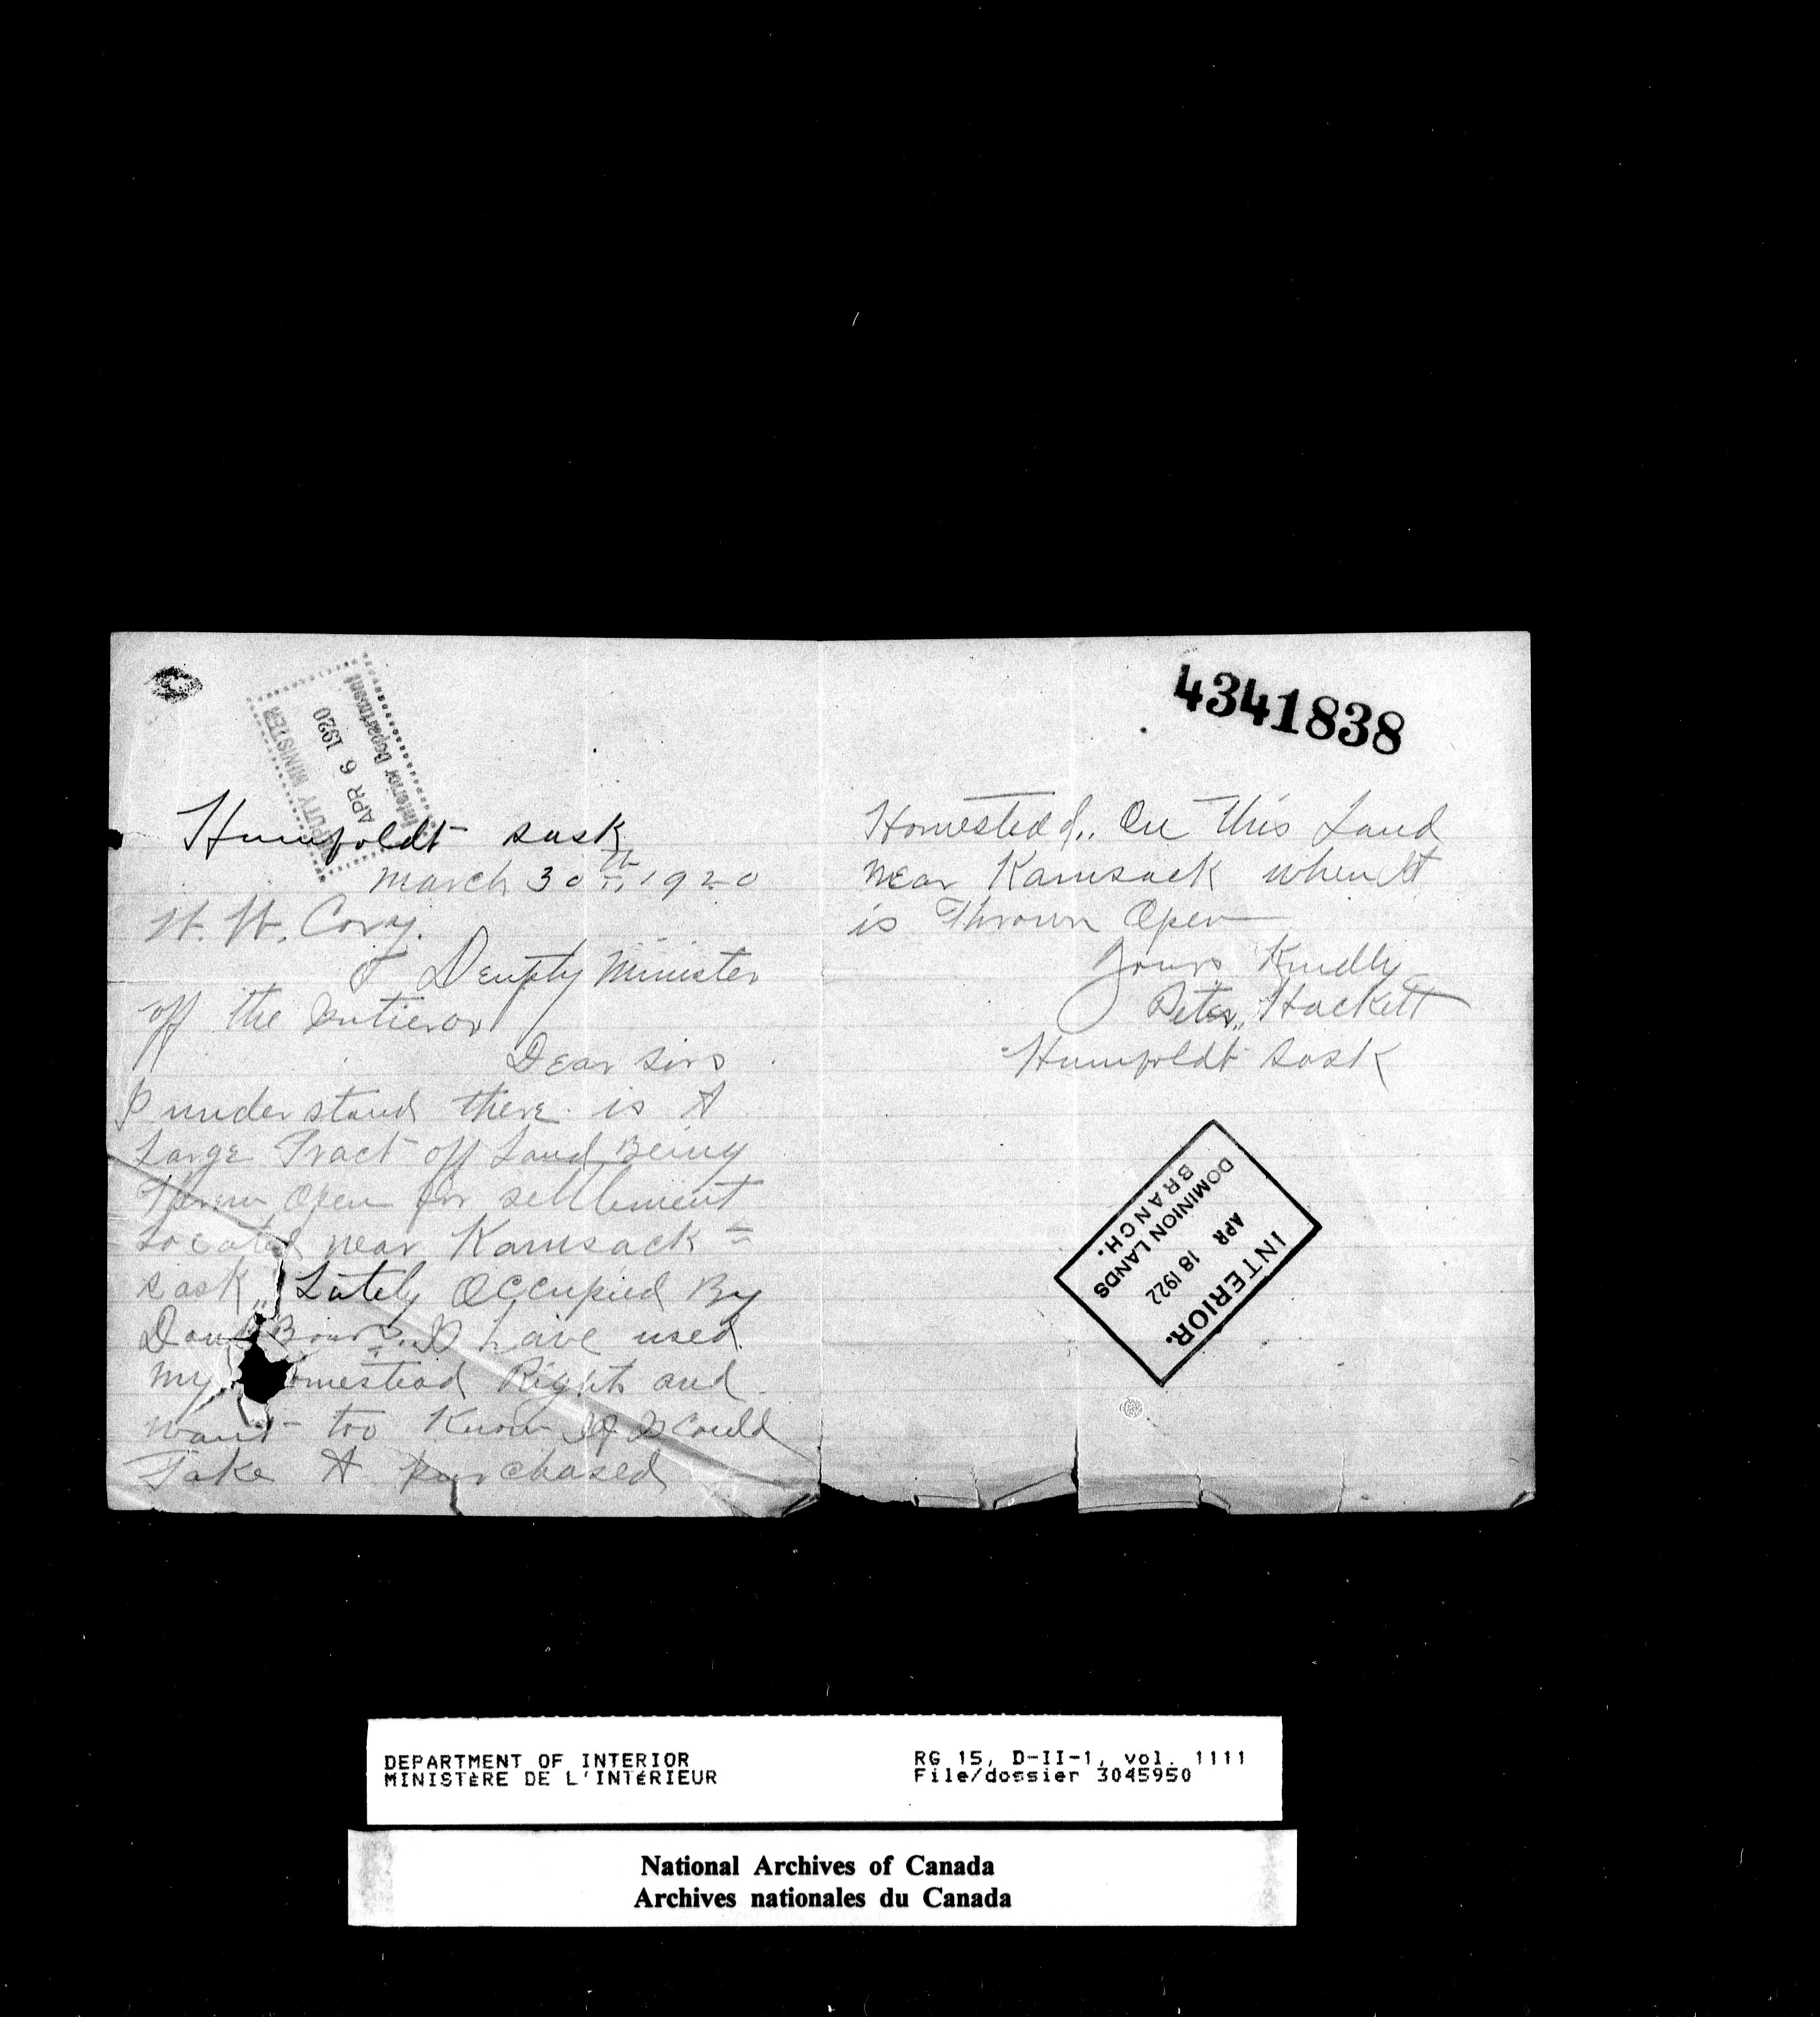 DEPUTY MINISTER
APR 6 1920
Interior Department
Humboldt sask
march 30th 1920
W. W. Cory.
Deupty Minister
off the Intieror
Dear sirs
I understand there is A
Large Tract off Land Being
open for settlement
Located near Kamsack =
sask,, Lately Occupied By
I have used
my omestead Right and
want too Know If I Could
Take A purchased
4341838
Homestead,, On This Land
near Kamsack when it
is Thrown Open
Yours Kindly
Peter,, Hackett
Humboldt sask
INTERIOR.
APR 18 1922
DOMINION LANDS
BRANCH.
DEPARTMENT OF INTERIOR
MINISTÈRE DE L'INTÉRIEUR
RG 15, D-II-1, vol. 1111
File/dossier 3045950
National Archives of Canada
Archives nationales du Canada